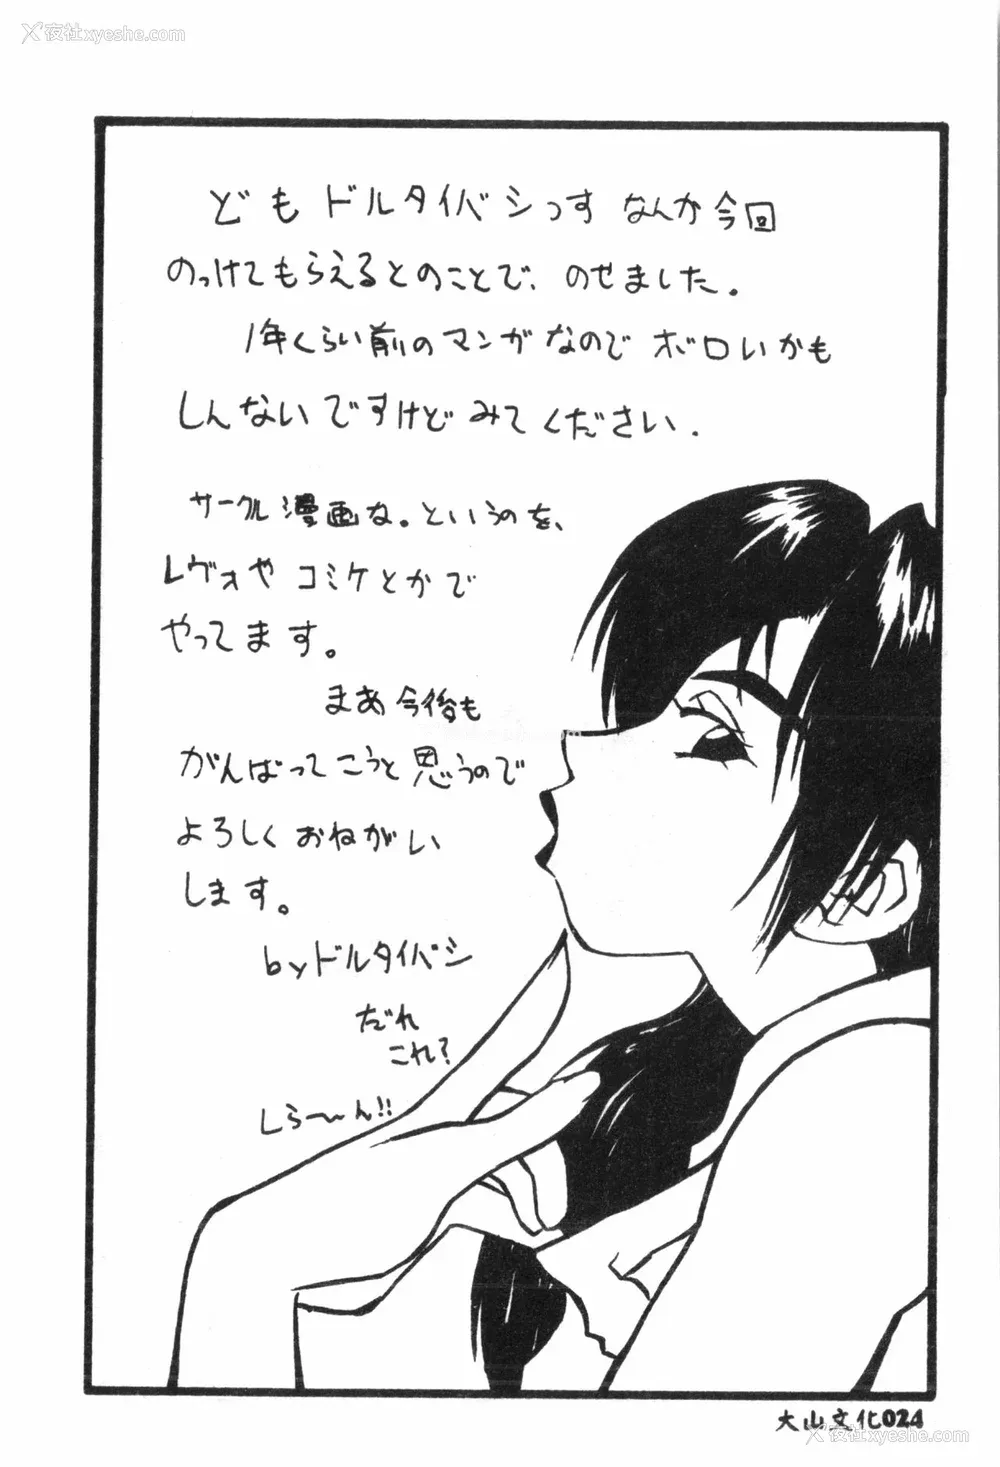 夜社xyeshe.com
ども ドルタイバシっす なんか今回
のっけてもらえるとのことで、のせました.
1年くらい前のマンガなので ボロいかも
しんないですけど みてください.
サークル漫画な。というのを、
レヴォや コミケとかで
やってます。
まあ今後も
がんばってこうと思うので
よろしく おねがい
します。
byドルタイバシ
だれ
これ?
しら〜ん!!
大山文化024
夜社xyeshe.com